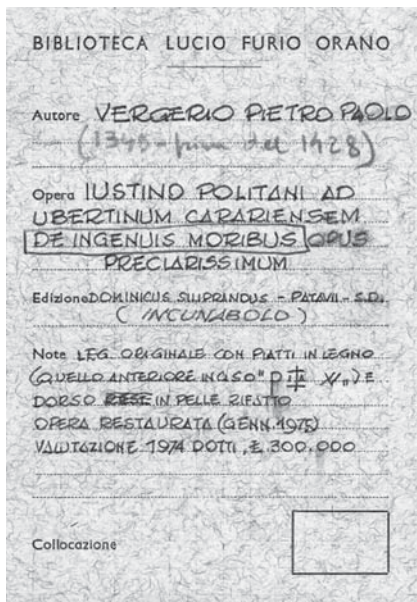 BIBLIOTECA LUCIO FURIO ORANO
Autore VERGERIO PIETRO PAOLO
(1345 - prima del 1428)
Opera IUSTINO POLITANI AD
UBERTINUM CARARIENSEM
DE INGENUIS MORIBUS OPUS
PRECLARISSIMUM
Edizione DOMINICUS SILIPRANDUS - PATAVII - S.D.
(INCUNABOLO)
Note LEG. ORIGINALE CON PIATTI IN LEGNO
(QUELLO ANTERIORE INCISO "P
DORSO IN PELLE RIFATTO
OPERA RESTAURATA (GENN. 1975)
VALUTAZIONE 1974 DOTTI, £. 300.000
Collocazione